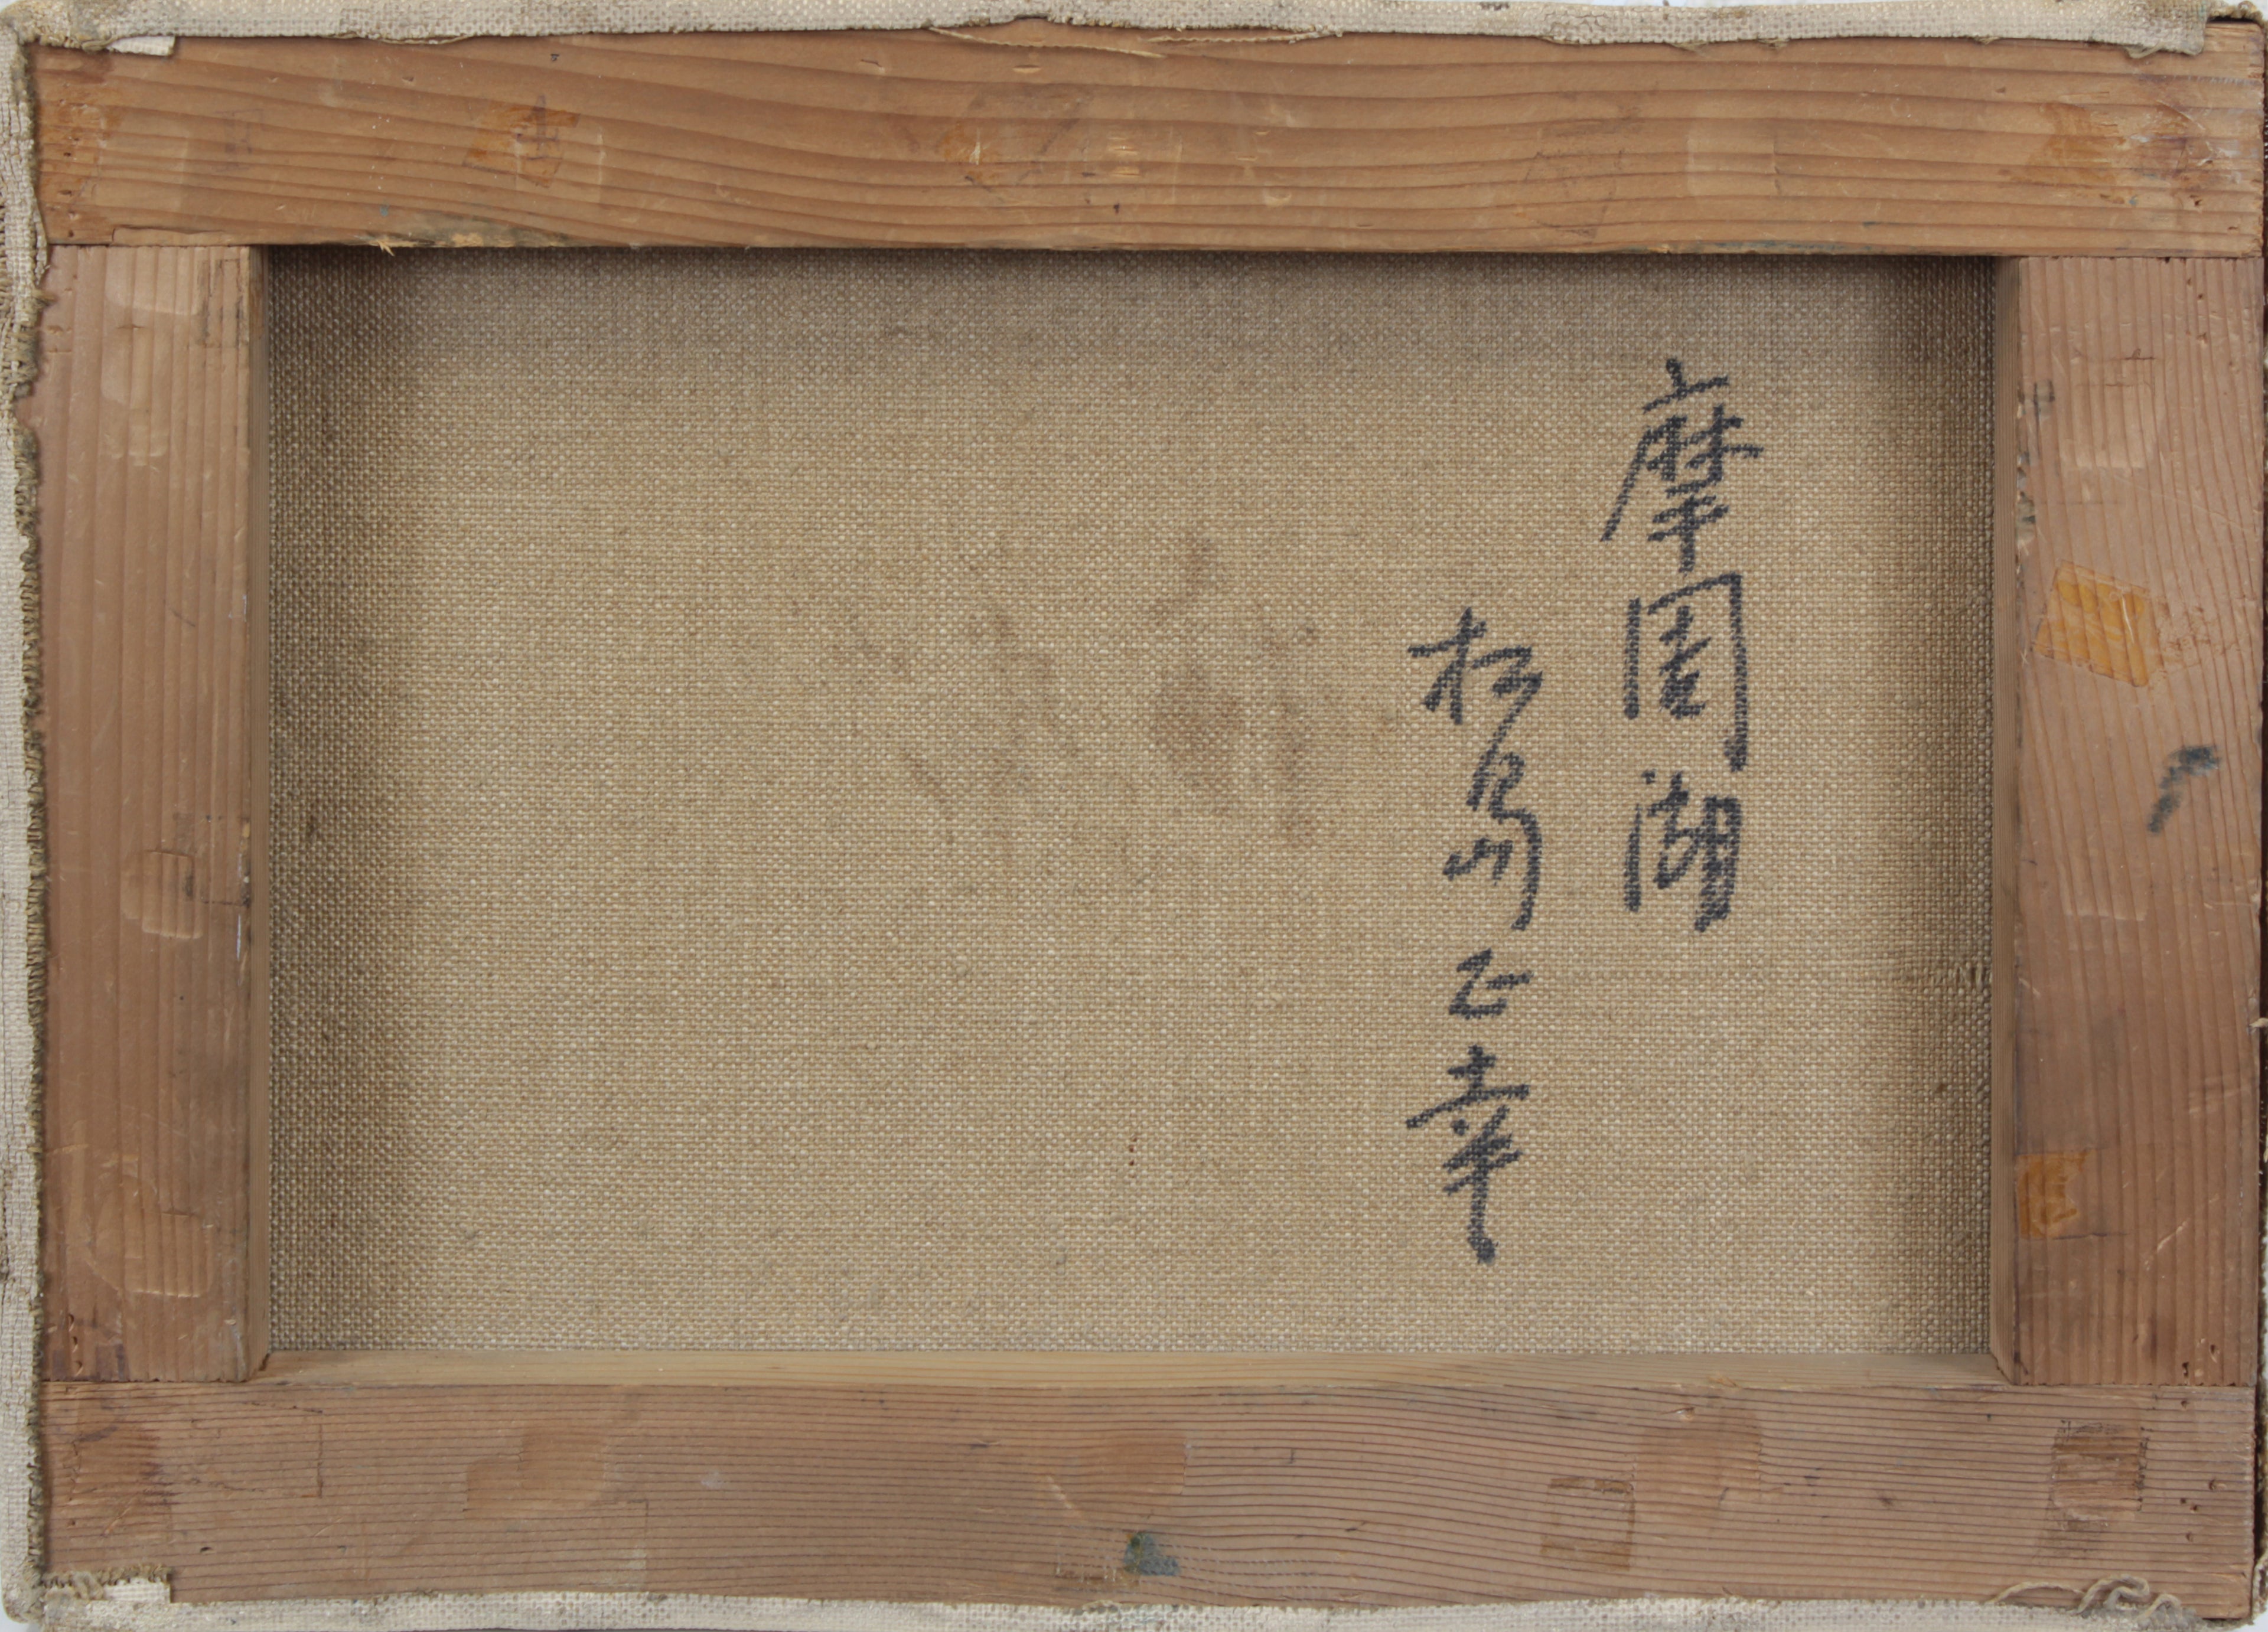 摩周湖
松島正幸